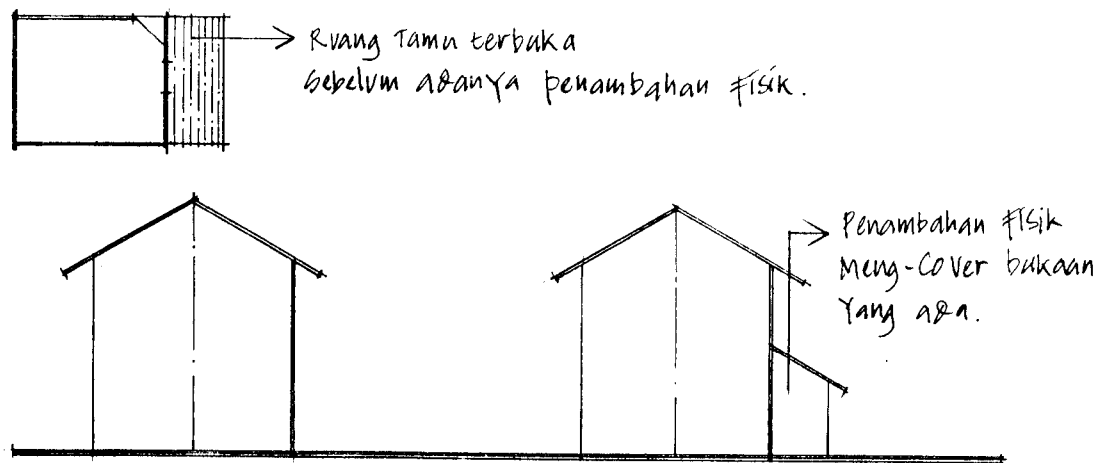 Ruang Tamu terbuka
sebelum adanya penambahan Fisik.
Penambahan Fisik
Meng-Cover bukaan
Yang ada.